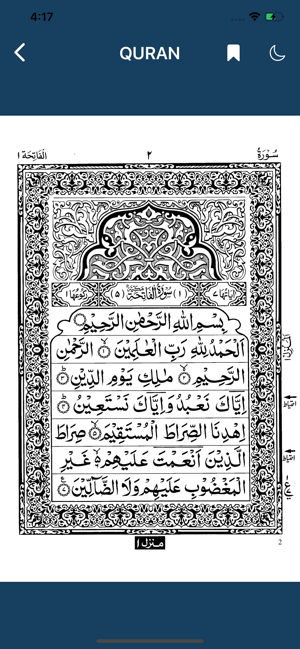 4:17
QURAN
سُوْرَةُ ٢ اَلْفَاتِحَة ١
اٰيَاتُهَا ٧ (١) سُوْرَةُ الْفَاتِحَةِ (٥) رُكُوْعُهَا ١
بِسْمِ اللّٰهِ الرَّحْمٰنِ الرَّحِيْمِ
اَلْحَمْدُ لِلّٰهِ رَبِّ الْعٰلَمِيْنَ ١ الرَّحْمٰنِ
الرَّحِيْمِ ٢ مٰلِكِ يَوْمِ الدِّيْنِ ٣
اِيَّاكَ نَعْبُدُ وَاِيَّاكَ نَسْتَعِيْنُ ٤
اِهْدِنَا الصِّرَاطَ الْمُسْتَقِيْمَ ٥ صِرَاطَ
الَّذِيْنَ اَنْعَمْتَ عَلَيْهِمْ ٦ غَيْرِ
الْمَغْضُوْبِ عَلَيْهِمْ وَلَا الضَّآلِّيْنَ ٧
منزل ١
2